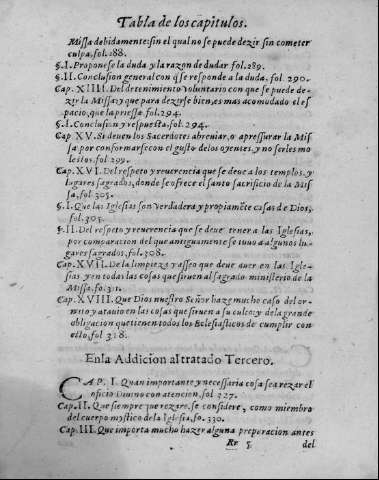 Tabla de los capitulos.
Missa debidamente: sin el qual no se puede dezir sin cometer
culpa, fol. 288.
§. I. Proponese la duda y la razon de dudar fol. 289.
§. II. Conclusion general con q̃ se responde a la duda. fol. 290.
Cap. XIIII. Del detenimiento voluntario con que se puede de-
zir la Missa: y que para dezirse bien, es mas acomodado el es
pacio, que la priessa fol. 294.
§. I. Conclusion y respuesta. fol. 294.
Cap. XV. Si deuen los Sacerdotes abreuiar, o apressurar la Mis
sa por conformarse con el gusto de los oyentes, y no serles mo
lestos. fol. 299.
Cap. XVI. Del respeto y reuerencia que se deue a los templos, y
lugares sagrados, donde se ofrece el santo sacrificio de la Mis
sa, fol. 305.
§. I. Que las Iglesias son verdadera y propiamẽte casas de Dios,
fol. 305.
§. II. Del respeto y reuerencia que se deue tener a las Iglesias,
por comparacion del que antiguamente se tuuo a algunos lu-
gares sagrados, fol. 308.
Cap. XVII. De la limpieza y asseo que deue auer en las Igle-
sias y en todas las cosas que siruen al sagrado ministerio de la
Missa. fo. 311.
Cap. XVIII. Que Dios nuestro Señor haze mucho caso del or-
nato y atauio en las cosas que siruen a su culto: y de la grande
obligacion que tienen todos los Eclesiasticos de cumplir con
esto, fol 318.
En la Addicion al tratado Tercero.
CAP. I. Quan importante y necessaria cosa sea rezar el
oficio Diuino con atencion, fol 327.
Cap. II. Que siempre que rezare, se considere, como miembro
del cuerpo mystico de la Iglesia, fo. 330.
Cap. III. Que importa mucho hazer alguna preparacion antes
Rr 5 del